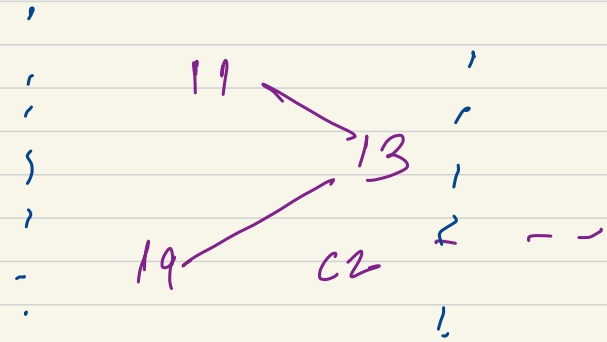 11
13
19 C2